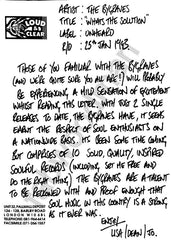 LOUD
AND
CLEAR
ARTIST : THE BYGRAVES
TITLE : "WHATS THE SOLUTION"
LABEL : UNHEARD
R/D : 25TH JAN 1993
THOSE OF YOU FAMILIAR WITH THE BYGRAVES
(AND WE'RE QUITE SURE YOU ALL ARE!) WILL PROBABLY
BE EXPERIENCING, A MILD SENSATION OF EXCITEMENT
WHILST READING THIS LETTER. WITH THE 2 SINGLE
RELEASES TO DATE, THE BYGRAVES HAVE, IT SEEMS
EARNT THE RESPECT OF SOUL ENTHUSIASTS ON
A NATIONWIDE BASIS. ITS BEEN SOME TIME COMING
BUT COMPRISES OF 10 SOLID, QUALITY, INSPIRED
SOULFUL RECORDS (INCLUDING, SET ME FREE AND
DO THE RIGHT THING). THE BYGRAVES ARE A TALENT
TO BE RECKONED WITH AND PROOF ENOUGH THAT
SOUL MUSIC IN THIS COUNTRY IS AS STRONG,
AS IT EVER WAS.
ENJOY
LISA/DEAN/JO.
LONDON